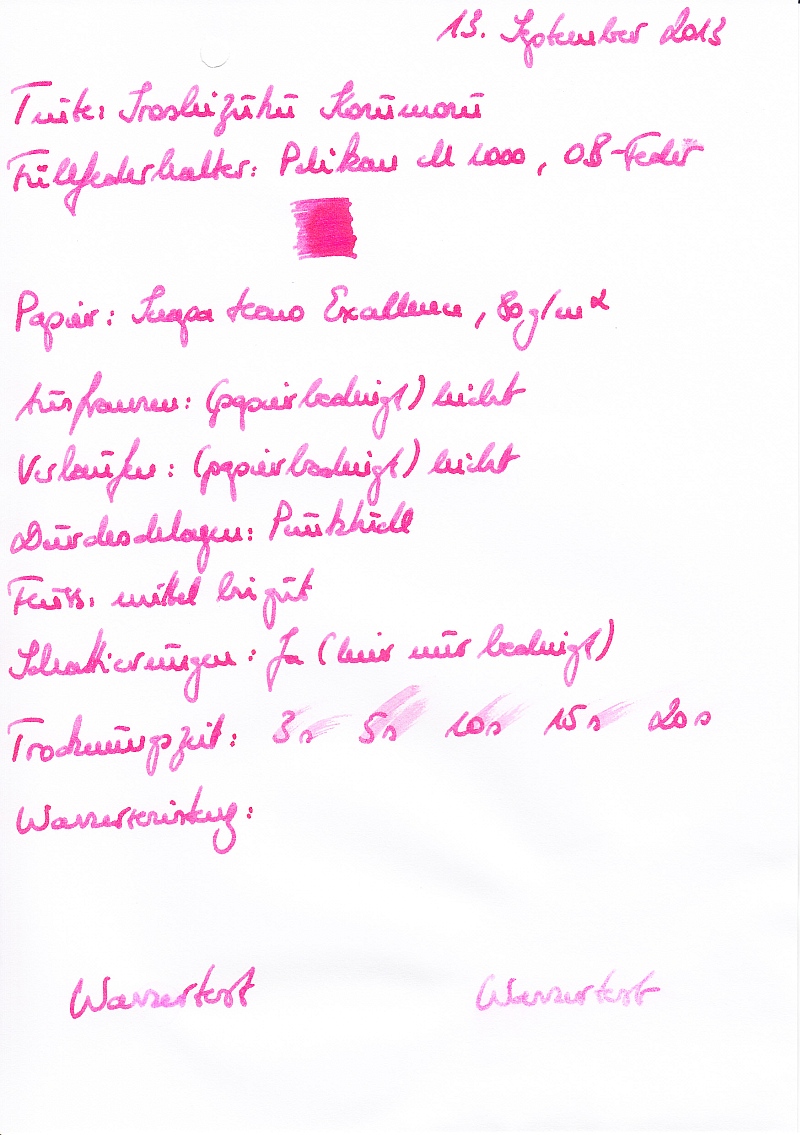 13. September 2013
Tinte: Iroshizuku Kosumosu
Füllfederhalter: Pelikan M 1000, OB-Feder
Papier: Inapa tecno Excellence, 80 g/m²
Ausfransen: (papierbedingt) leicht
Verlaufen: (papierbedingt) leicht
Durchschlagen: Punktuell
Fluss: mittel bis gut
Schattierungen: Ja (hier nur bedingt)
Trocknungszeit: 3s 5s 10s 15s 20s
Wasserfestigkeit:
Wassertest Wassertest